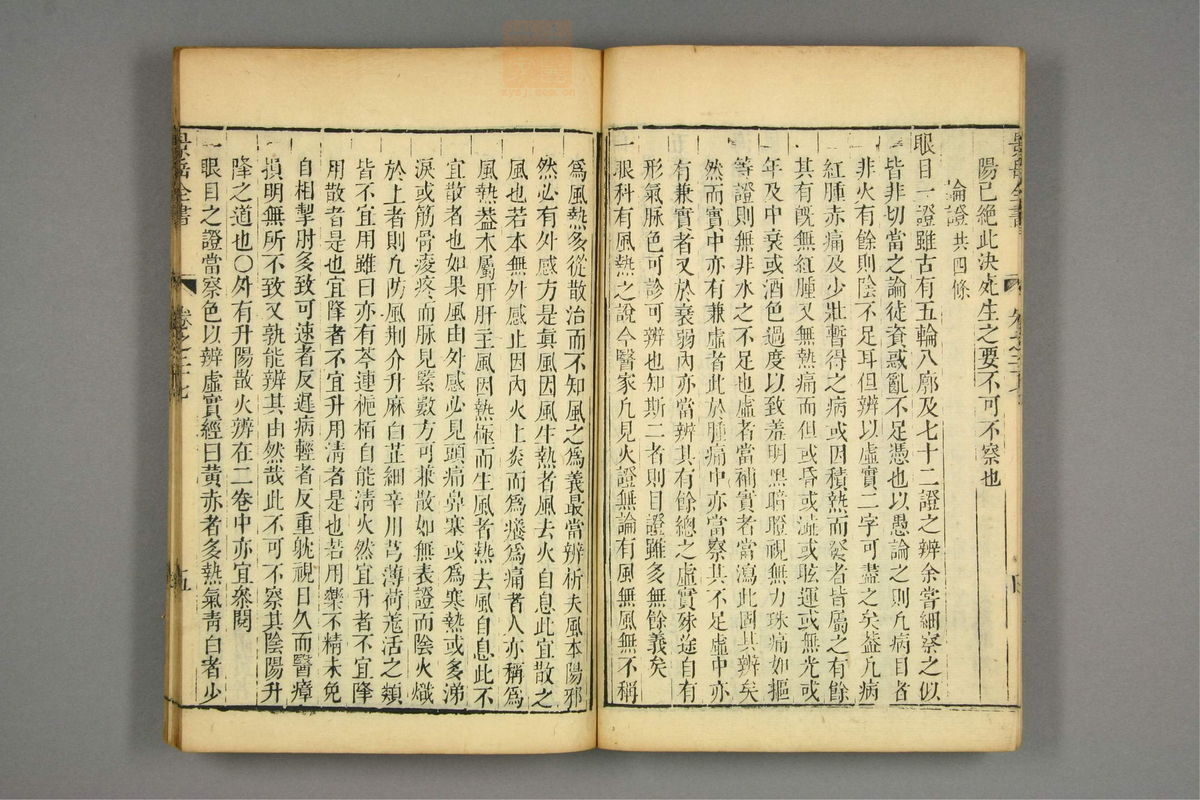 陽已絕此決死生之要不可不察也
論證共四條
眼目一證雖古有五輪八廓及七十二證之辨余嘗細察之似
皆非切當之論徒資惑亂不足憑也以愚論之則凡病目者
非火有餘則陰不足耳但辨以虛實二字可盡之矣葢凡病
紅腫赤痛及少壯暫得之病或因積熱而發者皆屬之有餘
其有旣無紅腫又無熱痛而但或昏或澁或眩運或無光或
年及中衰或酒色過度以致羞明黑暗瞪視無力珠痛如摳
等證則無非水之不足也虛者當補實者當瀉此固其辨矣
然而實中亦有兼虛者此於腫痛中亦當察其不足虛中亦
有兼實者又於衰弱內亦當辨其有餘總之虛實殊途自有
形氣脉色可診可辨也知斯二者則目證雖多無餘義矣
一眼科有風熱之說今醫家凡見火證無論有風無風無不稱
爲風熱多從散治而不知風之爲義最當辨析夫風本陽邪
然必有外感方是眞風因風生熱者風去火自息此宜散之
風也若本無外感止因內火上炎而爲癢爲痛者人亦稱爲
風熱葢木屬肝肝主風因熱極而生風者熱去風自息此不
宜散者也如果風由外感必見頭痛鼻塞或爲寒熱或多涕
淚或筋骨痠疼而脉見緊數方可兼散如無表證而陰火熾
於上者則凡防風荆介升麻白芷細辛川芎薄荷羗活之類
皆不宜用雖曰亦有芩連梔栢自能淸火然宜升者不宜降
用散者是也宜降者不宜升用淸者是也若用藥不精未免
自相掣肘多致可速者反遲病輕者反重躭視日久而醫瘴
損明無所不致又孰能辨其由然哉此不可不察其陰陽升
降之道也〇外有升陽散火辨在二卷中亦宜參閱
一眼目之證當察色以辨虛實經曰黃赤者多熱氣靑白者少
景岳全書
卷之二十七
五